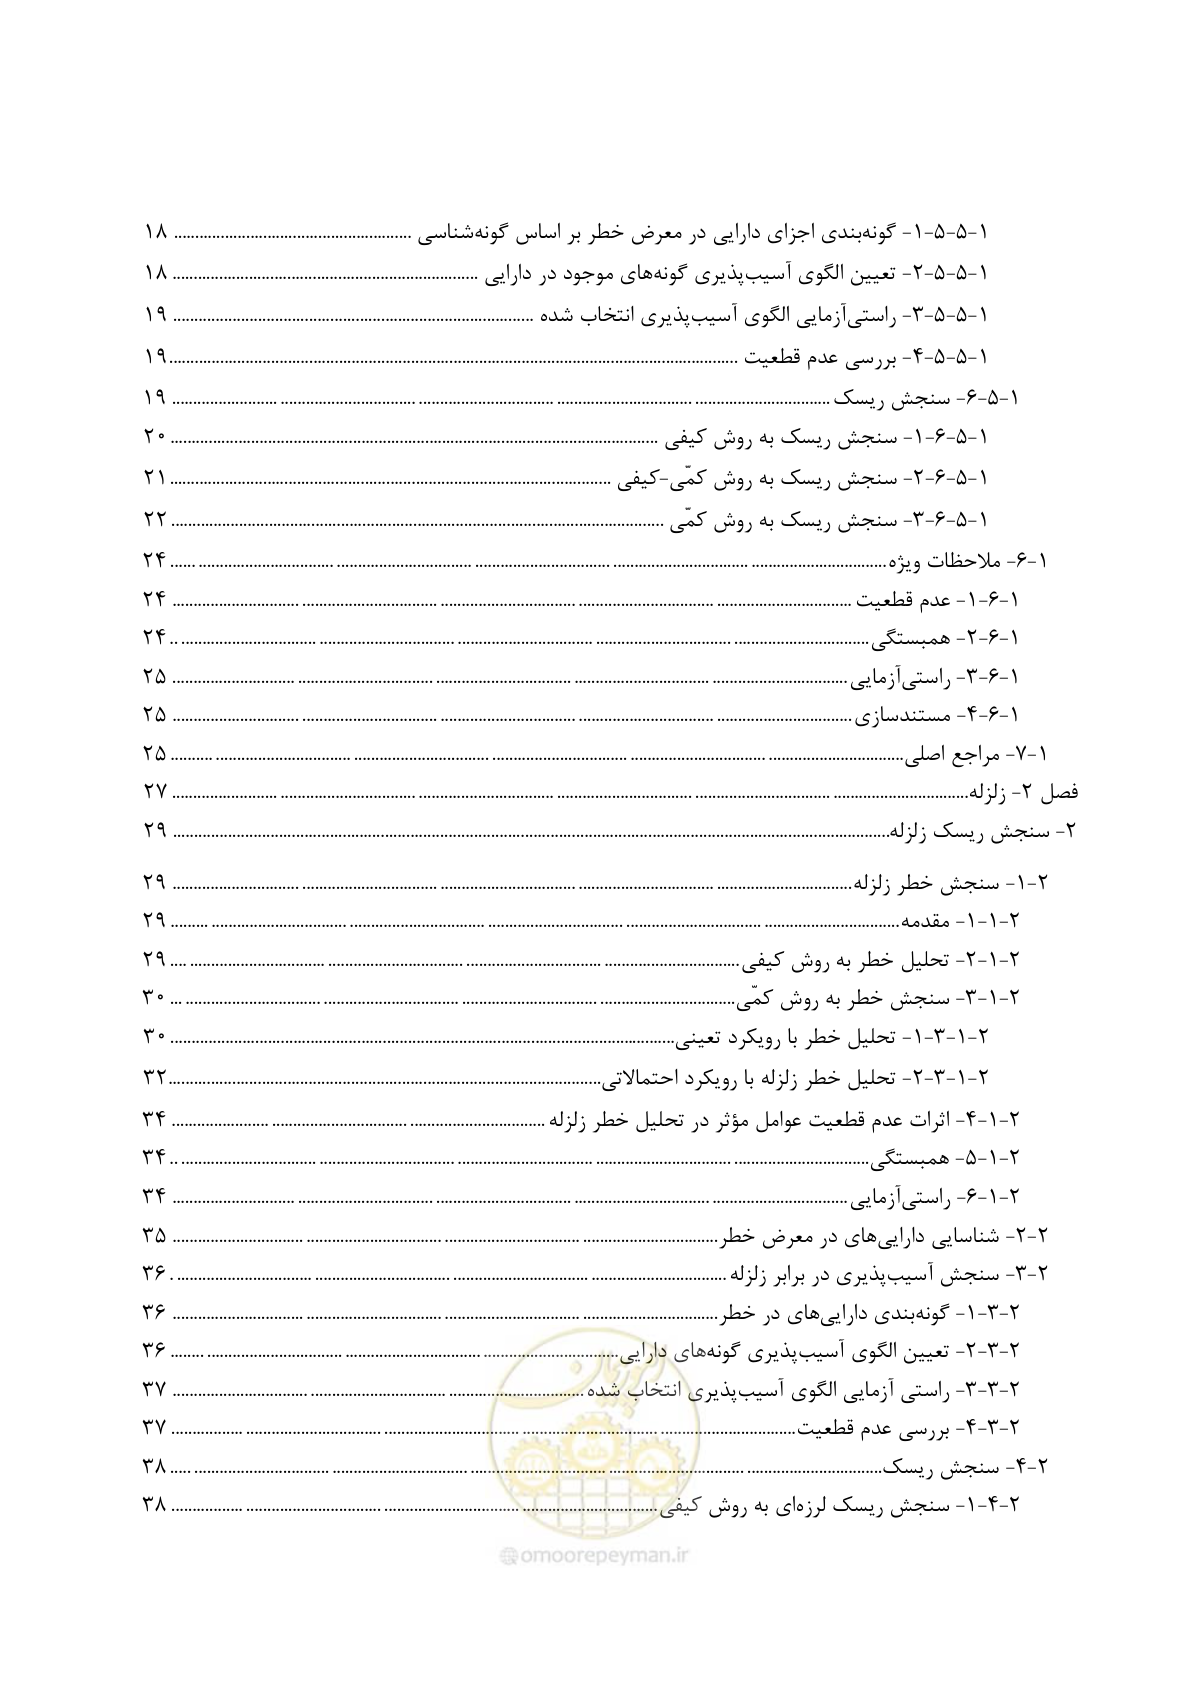 ۱-۵-۵-۱- گونه‌بندی اجزای دارایی در معرض خطر بر اساس گونه‌شناسی ........ ۱۸
۱-۵-۵-۲- تعیین الگوی آسیب‌پذیری گونه‌های موجود در دارایی ........ ۱۸
۱-۵-۵-۳- راستی‌آزمایی الگوی آسیب‌پذیری انتخاب شده ........ ۱۹
۱-۵-۵-۴- بررسی عدم قطعیت ........ ۱۹
۱-۵-۶- سنجش ریسک ........ ۱۹
۱-۵-۶-۱- سنجش ریسک به روش کیفی ........ ۲۰
۱-۵-۶-۲- سنجش ریسک به روش کمّی-کیفی ........ ۲۱
۱-۵-۶-۳- سنجش ریسک به روش کمّی ........ ۲۲
۱-۶- ملاحظات ویژه ........ ۲۴
۱-۶-۱- عدم قطعیت ........ ۲۴
۱-۶-۲- همبستگی ........ ۲۴
۱-۶-۳- راستی‌آزمایی ........ ۲۵
۱-۶-۴- مستندسازی ........ ۲۵
۱-۷- مراجع اصلی ........ ۲۵
فصل ۲- زلزله ........ ۲۷
۲- سنجش ریسک زلزله ........ ۲۹
۲-۱- سنجش خطر زلزله ........ ۲۹
۲-۱-۱- مقدمه ........ ۲۹
۲-۱-۲- تحلیل خطر به روش کیفی ........ ۲۹
۲-۱-۳- سنجش خطر به روش کمّی ........ ۳۰
۲-۱-۳-۱- تحلیل خطر با رویکرد تعینی ........ ۳۰
۲-۱-۳-۲- تحلیل خطر زلزله با رویکرد احتمالاتی ........ ۳۲
۲-۱-۴- اثرات عدم قطعیت عوامل مؤثر در تحلیل خطر زلزله ........ ۳۴
۲-۱-۵- همبستگی ........ ۳۴
۲-۱-۶- راستی‌آزمایی ........ ۳۴
۲-۲- شناسایی دارایی‌های در معرض خطر ........ ۳۵
۲-۳- سنجش آسیب‌پذیری در برابر زلزله ........ ۳۶
۲-۳-۱- گونه‌بندی دارایی‌های در خطر ........ ۳۶
۲-۳-۲- تعیین الگوی آسیب‌پذیری گونه‌های دارایی ........ ۳۶
۲-۳-۳- راستی آزمایی الگوی آسیب‌پذیری انتخاب شده ........ ۳۷
۲-۳-۴- بررسی عدم قطعیت ........ ۳۷
۲-۴- سنجش ریسک ........ ۳۸
۲-۴-۱- سنجش ریسک لرزه‌ای به روش کیفی ........ ۳۸
@omoorepeyman.ir